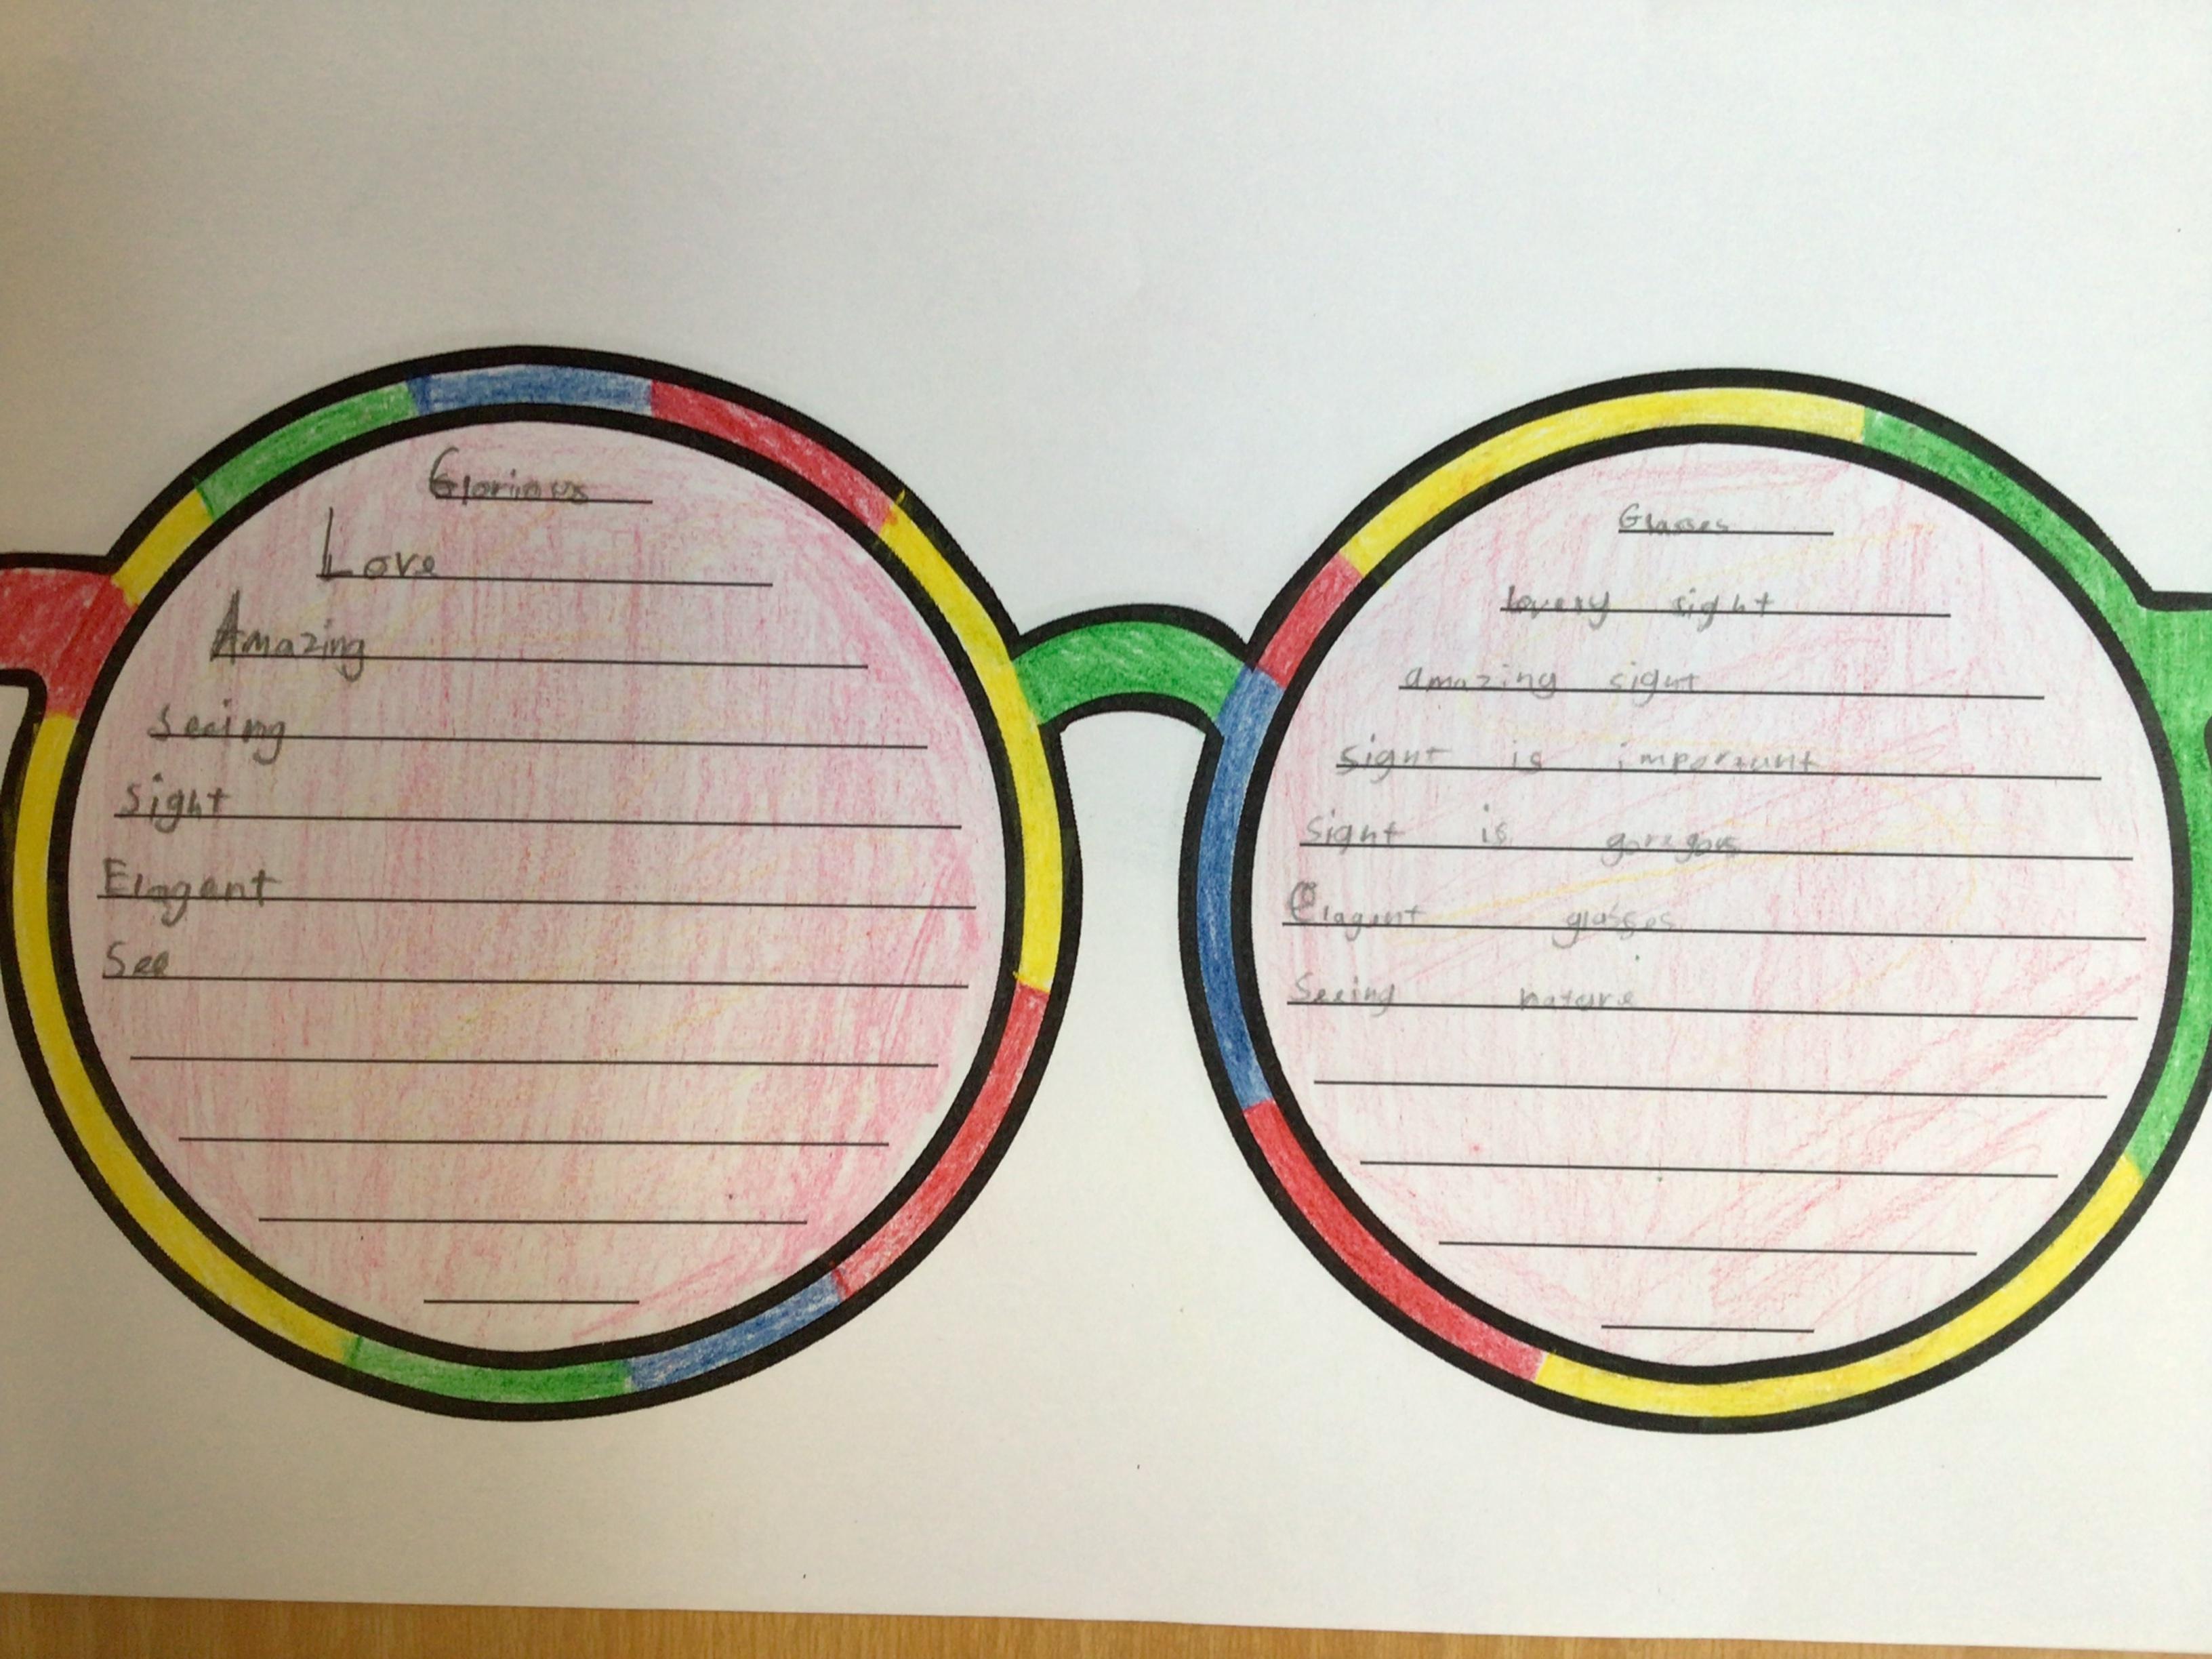 Glorious
Love
Amazing
Seeing
Sight
Elagent
See
Glasses
lovely sight
amazing sight
sight is important
Sight is gorzgous
Elagent glasses
Seeing nature